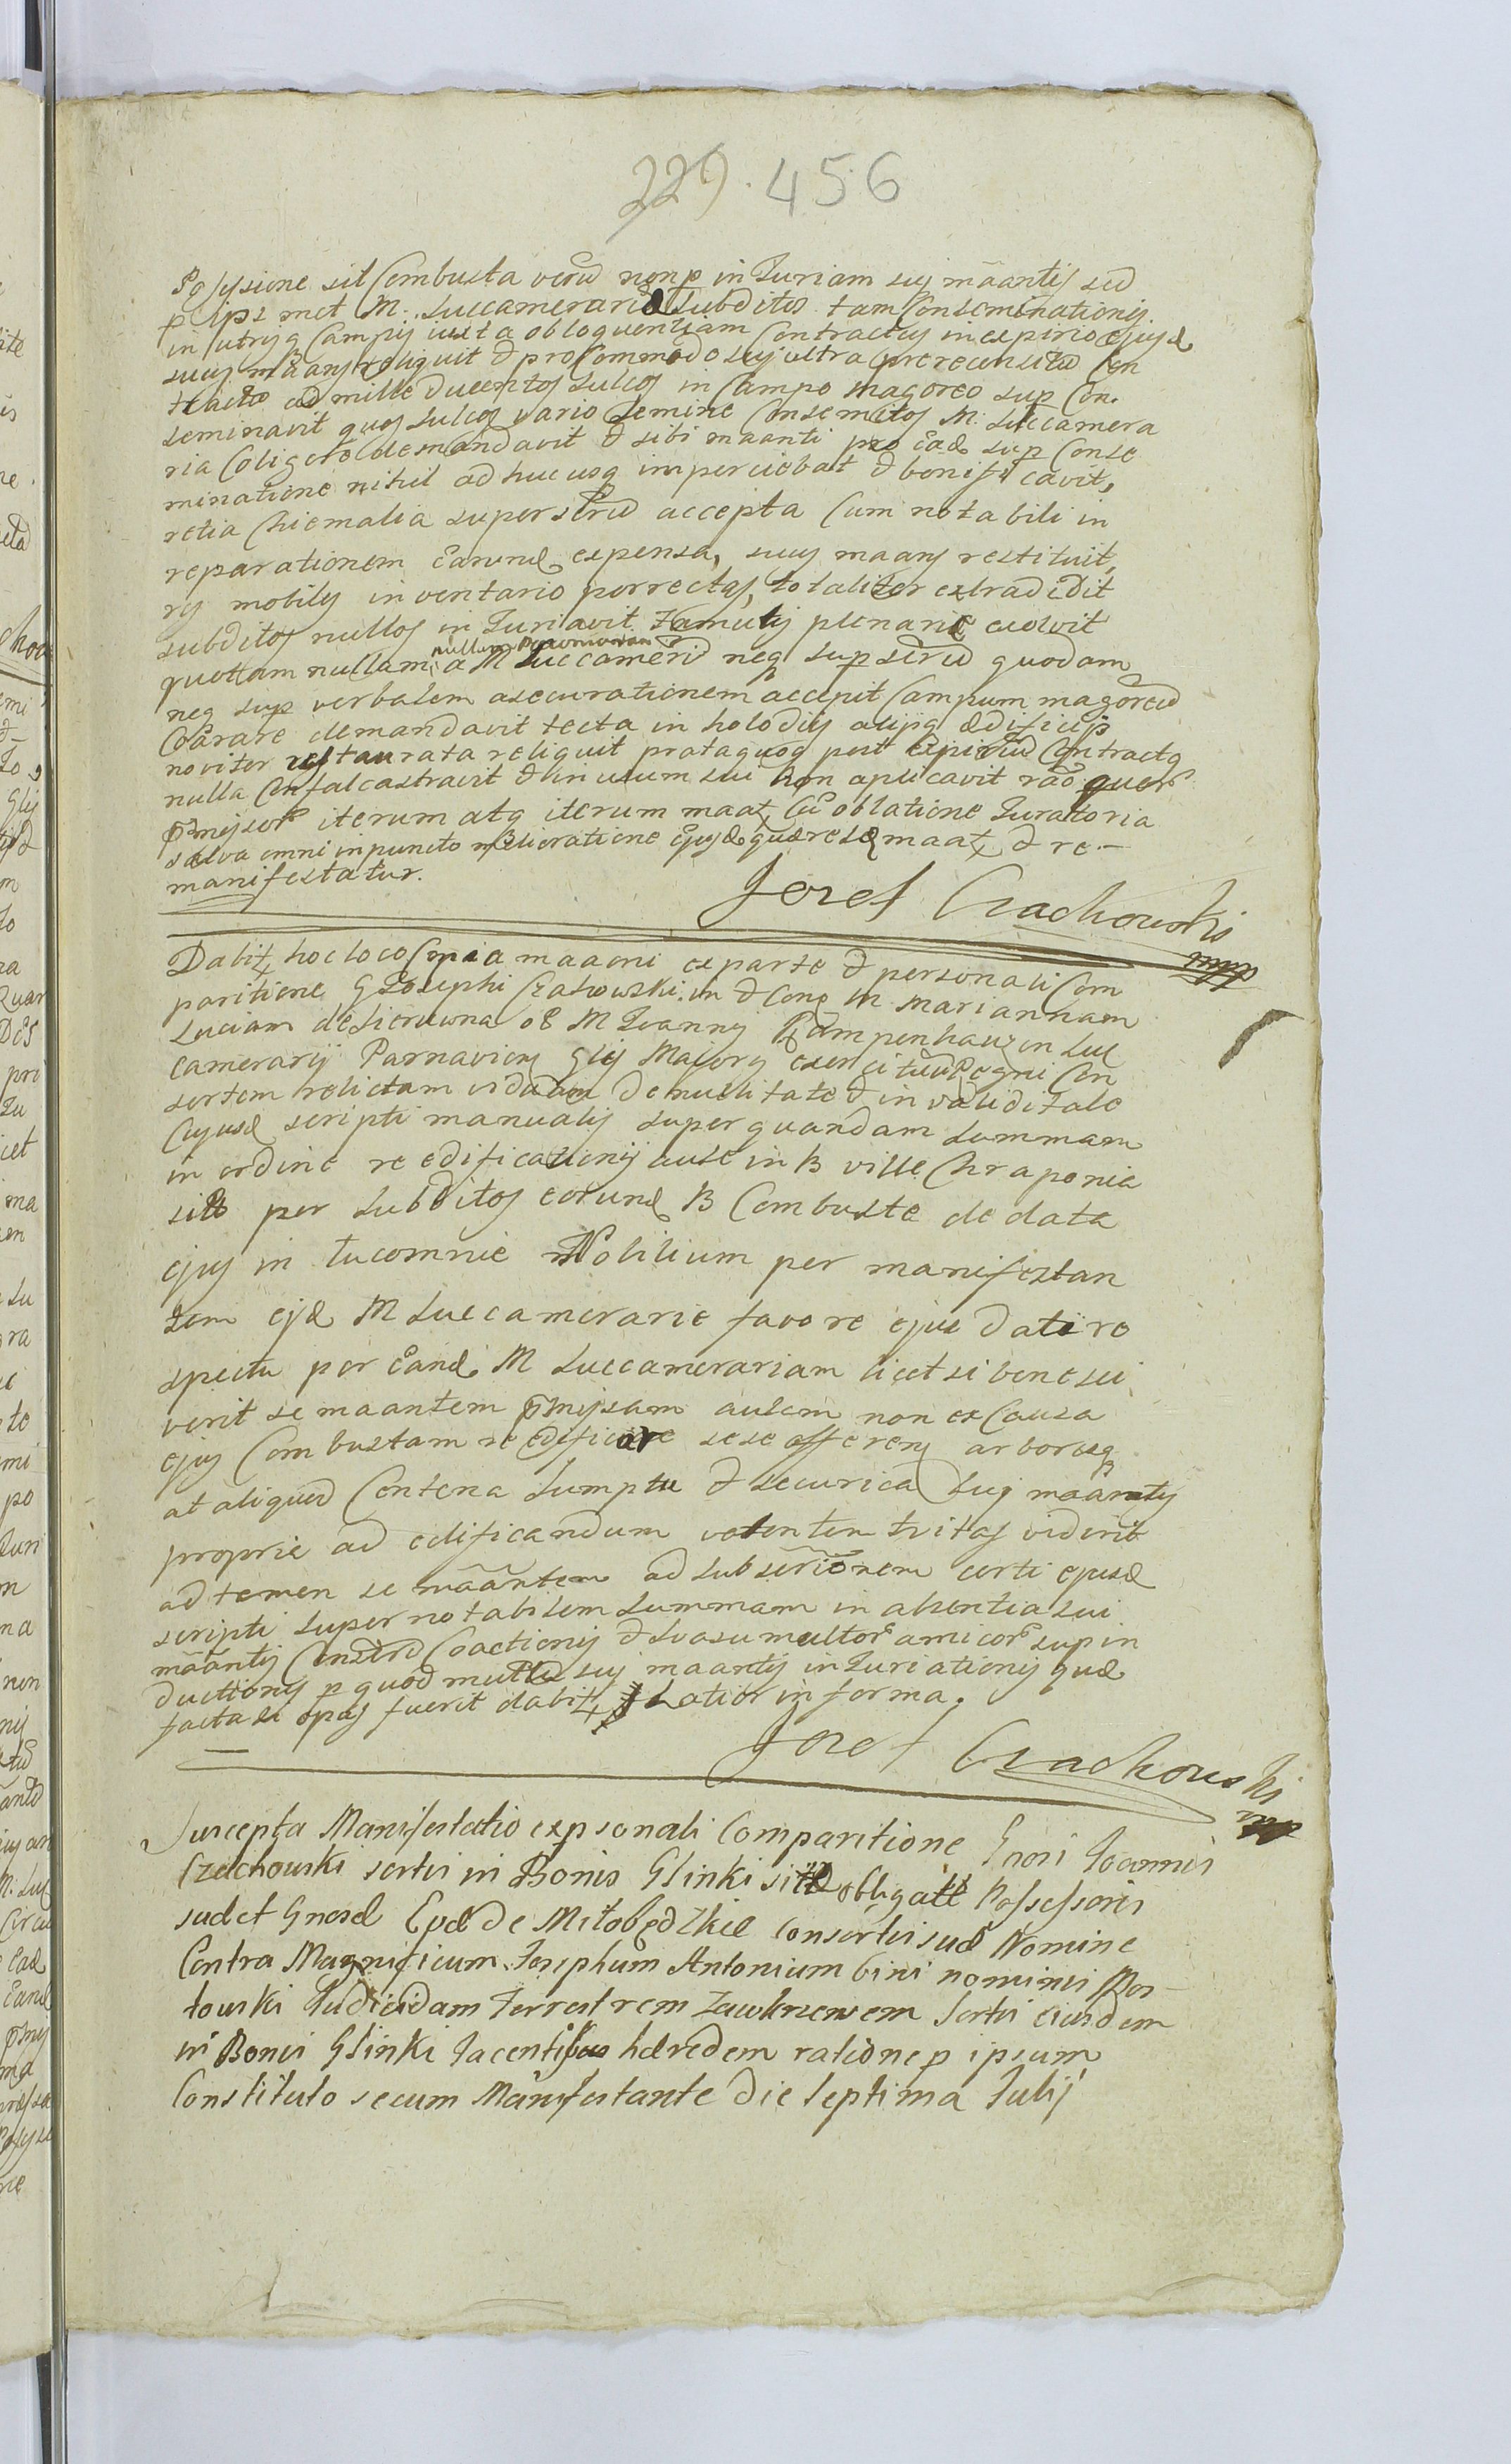 229. 456
Possysione sit Combusta verũ non p inJuriam sui mãantis sed
p ips met M. Succamerariæ Subditos tam Conseminationis
in utrisq Campis iuxta obloquentiam Contractus in expirio ejusd
suus mãans reliquit & pro Commodo sui ultra prerecensitũ Con
tractũ ad mille ducentos sulcos in Campo magoreo sup Con.
seminavit quos sulcos vario Semine Consemitos M. Succamera
ria Coligere demandavit & sibi maanti pro Eade sup Conse
minatione nihil ad hucusq imperciebat & bonificavit,
retia Chiemalia super accepta Cum notabili in
reparationem Earund expensa, suus maans restituit,
res mobiles inventario porrectas, totaliter extradidit
subditos nullos inJuriavit Famulis plenarie exolvit
nullam
quottam nullam a M Succamerñ neq sup quodam
neq sup verbalem asecurationem accepit Campum magoreũ
Coărare demandavit tecta in holodiis aliisq ædificiis
noviter restaurata reliquit prataquoq post Expiriũ Contractq
nulla Confalcastravit & in usum sui non aplicavit rãõ quor
põmissor iterum atq iterum maat, Cũ oblatione Juratoria
salva omni in puncto melioratione Ejusdquærelæ maat & re.-
manifestatur.
Jozef Czachowski
mpp
Dabit hoc loco Copia maaoni ex parte & personali Com
paritione G Josephi Czachowski. in & Cong M. Mariannam
Luciam de Sierawna oE M Joannis Kampenhauzen Suc
camerarij Parnavien Glis Majoris exercituũ Regni Con
sortem relictam viduam de nulitate & in validitate
Cujusd scripti manualis super quandam Summam
in ordine reedificationis aulæ in B ville Chraponia
sitæ per Subditos eorund B Combustæ de data
ejus in Lucomnie Nobilium per manifestan
tem ejd M Succamerarie favore ejus dati re
spectu per Eand M Succamerariam licet si bene sci
verit se maantem põmissam aulam non ex Causa
ejus Combustam reedificare sese offerens arboresq
at aliquod Contena Sumptu & securica Sui maantis
proprie ad edificandum viderit
ad temen se mãantem ad subscriõnem certi ejusd
scripti super notabilem Summam in absentia sui
mãantis Coactionis & suasu multor amicor sup in
ductionis p quod multa sui maantis inJuriationis quæ
facta si opus fuerit dabit Latior in forma.
Jozef Czachowski
mpp
Suscepta Manifestatio ex psonali Comparitione Gnosi Joannis
Czachowski sortis in Bonis Glinki sitæ obligatæ Possessoris
sud et Gnosæ Evæ de Mitobędzkie Consortis suæ Nomine
Contra Magnificum Josephum Antonium bini nominis Ros-
towski Judicidam Terrestrem Zawkrzensem Sortis eiusdem
in Bonis Glinki Jacentibus hæredem ratione p ipsum
Constituto secum Manifestante die Septima Julij